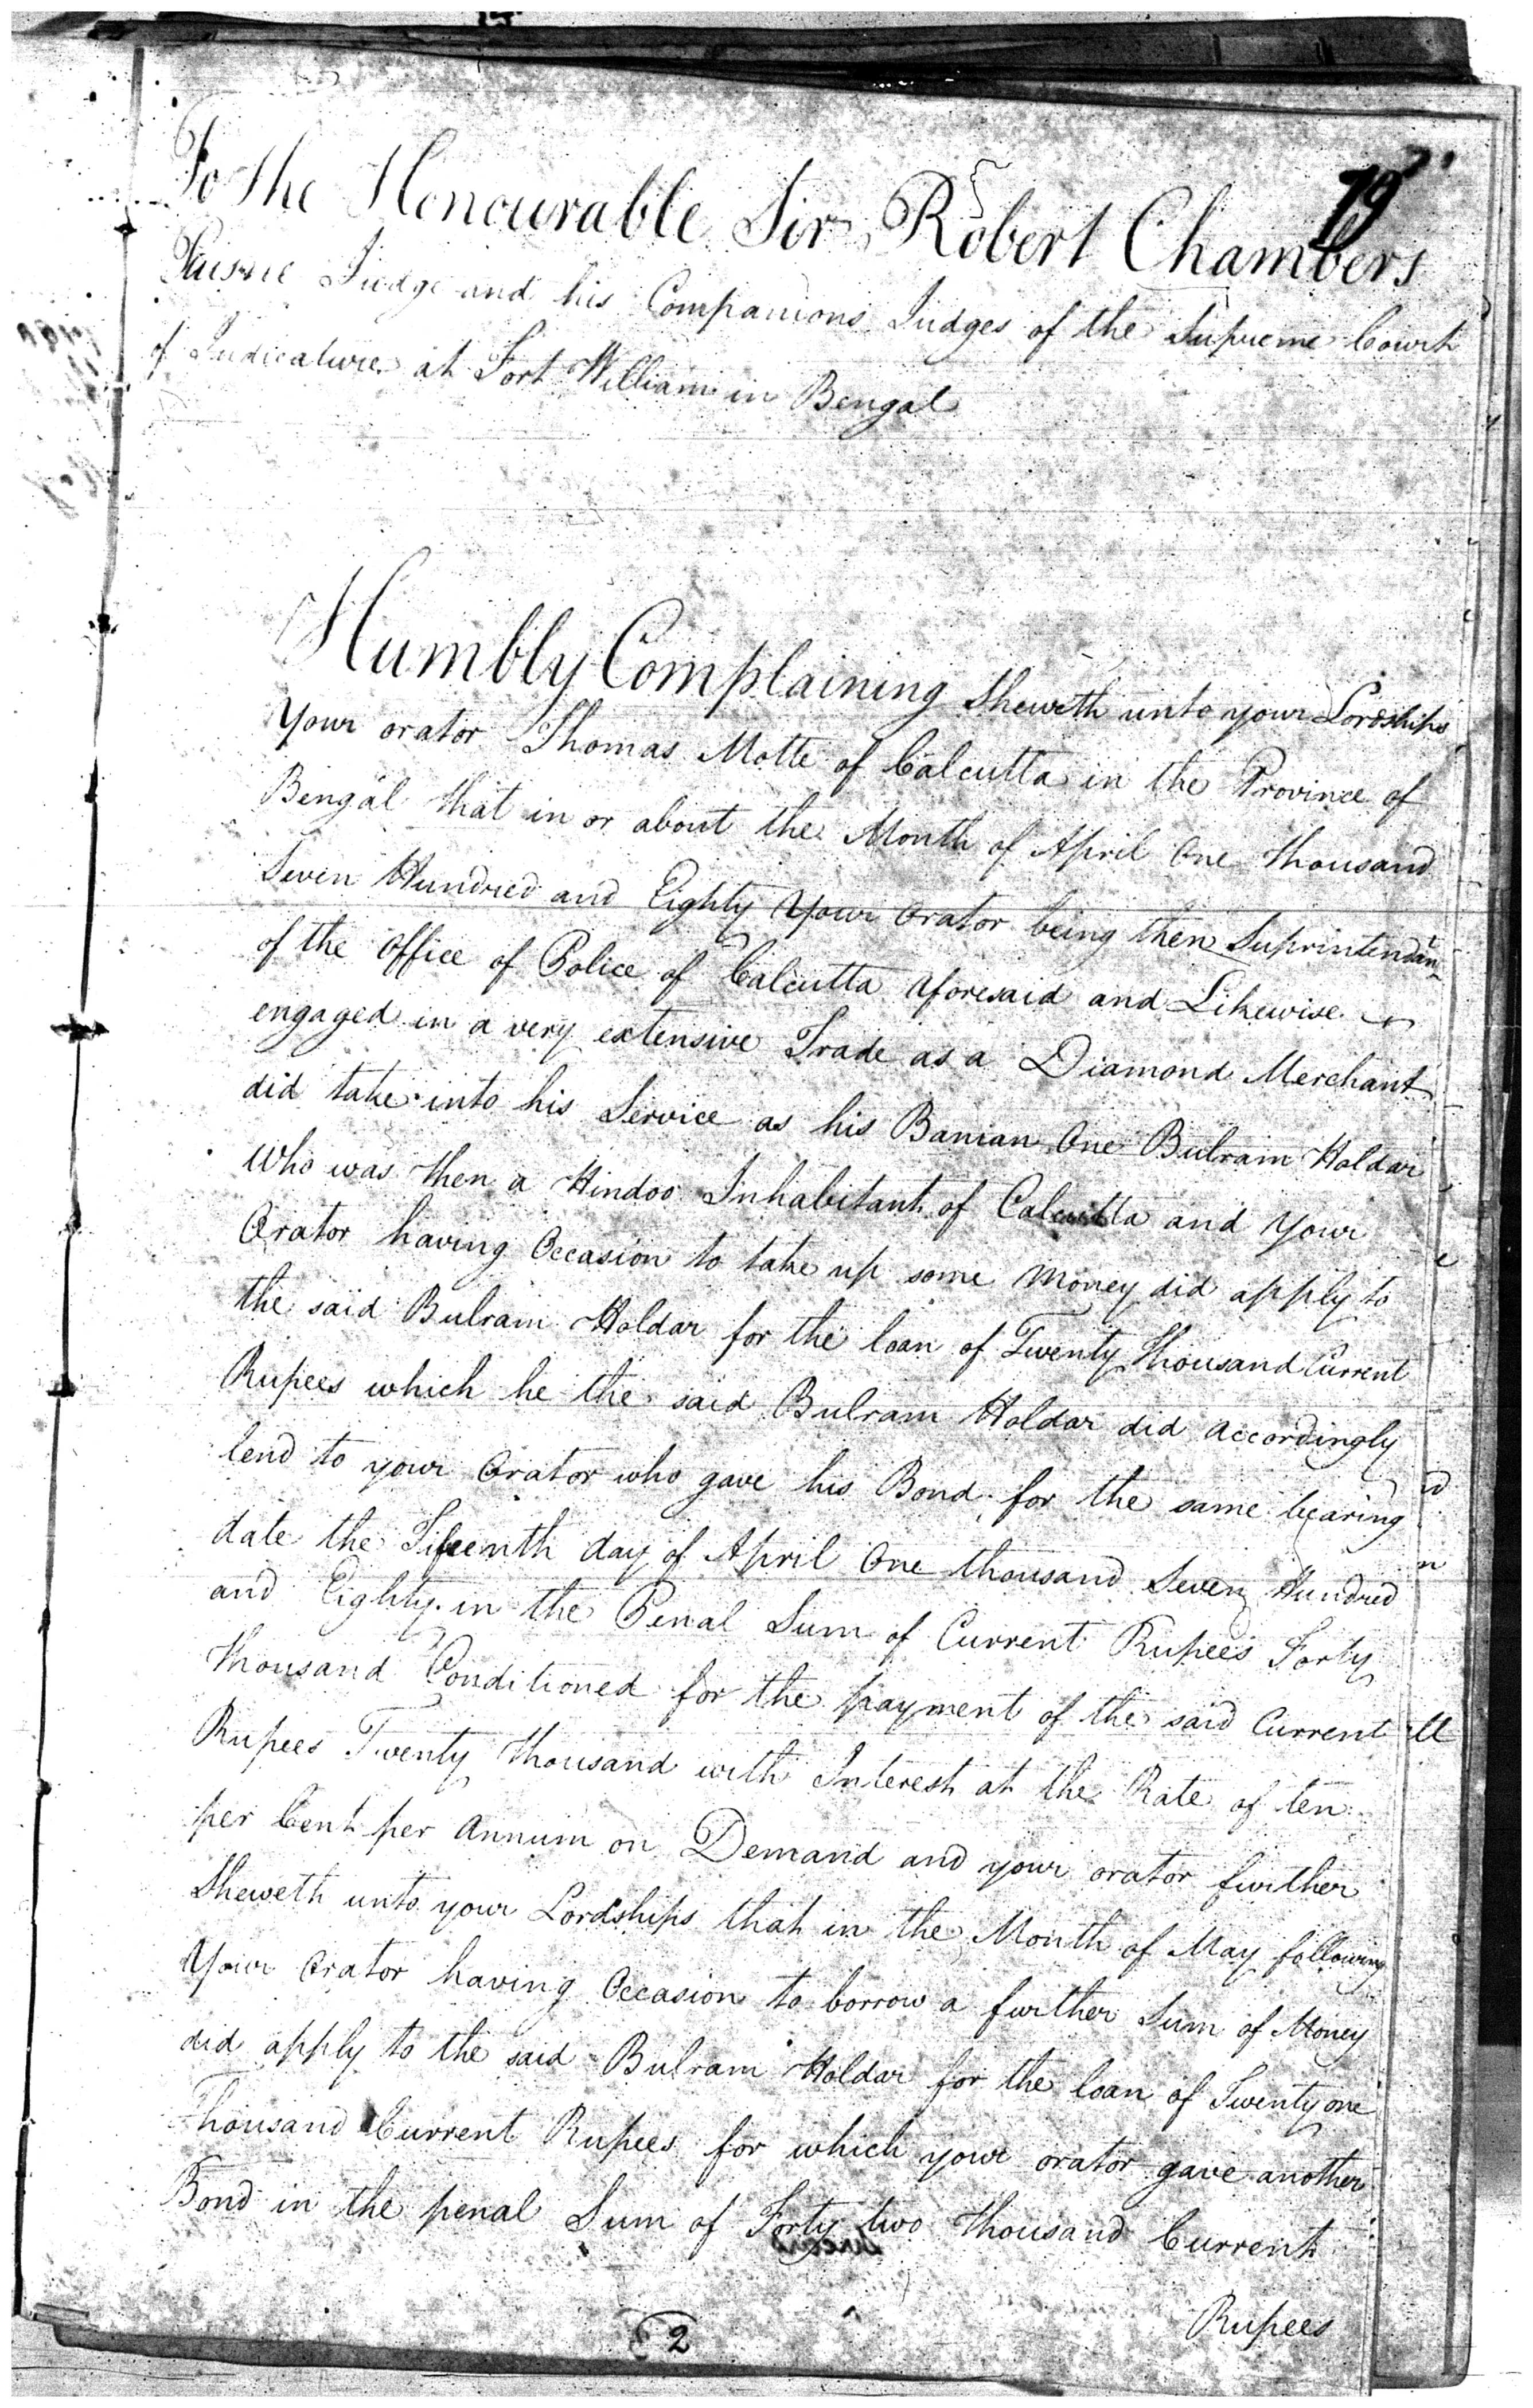 19
To the Honourable Sir Robert Chambers
Puisne Judge and his Companions Judges of the Supreme Court
of Judicature at Fort William in Bengal
Humbly Complaining Sheweth unto your Lordships
Your orator Thomas Motte of Calcutta in the Province of
Bengal that in or about the Month of April One Thousand
Seven Hundred and Eighty Your Orator being then Suprintendan
of the Office of Police of Calcutta aforesaid and Likewise
engaged in a very extensive Trade as a Diamond Merchant
did take into his Service as his Banian One Bulram Holdar
Who was then a Hindoo Inhabitant of Calcutta and Your
Orator having Occasion to take up some Money did apply to
the said Bulram Holdar for the loan of Twenty Thousand Current
Rupees which he the said Bulram Holdar did accordingly
lend to your Orator who gave his Bond for the same bearing
date the Fifeenth day of April One thousand Seven Hundred
and Eighty in the Penal Sum of Current Rupees Forty
Thousand Conditioned for the payment of the said Current
Rupees Twenty Thousand with Interest at the Rate of ten
per Cent per Annum on Demand and your orator further
Sheweth unto your Lordships that in the Month of May following
Your Orator having Occasion to borrow a further Sum of Money
did apply to the said Bulram Holdar for the loan of Twenty one
Thousand Current Rupees for which your orator gave another
Bond in the penal Sum of Forty two Thousand Current
Rupees
2